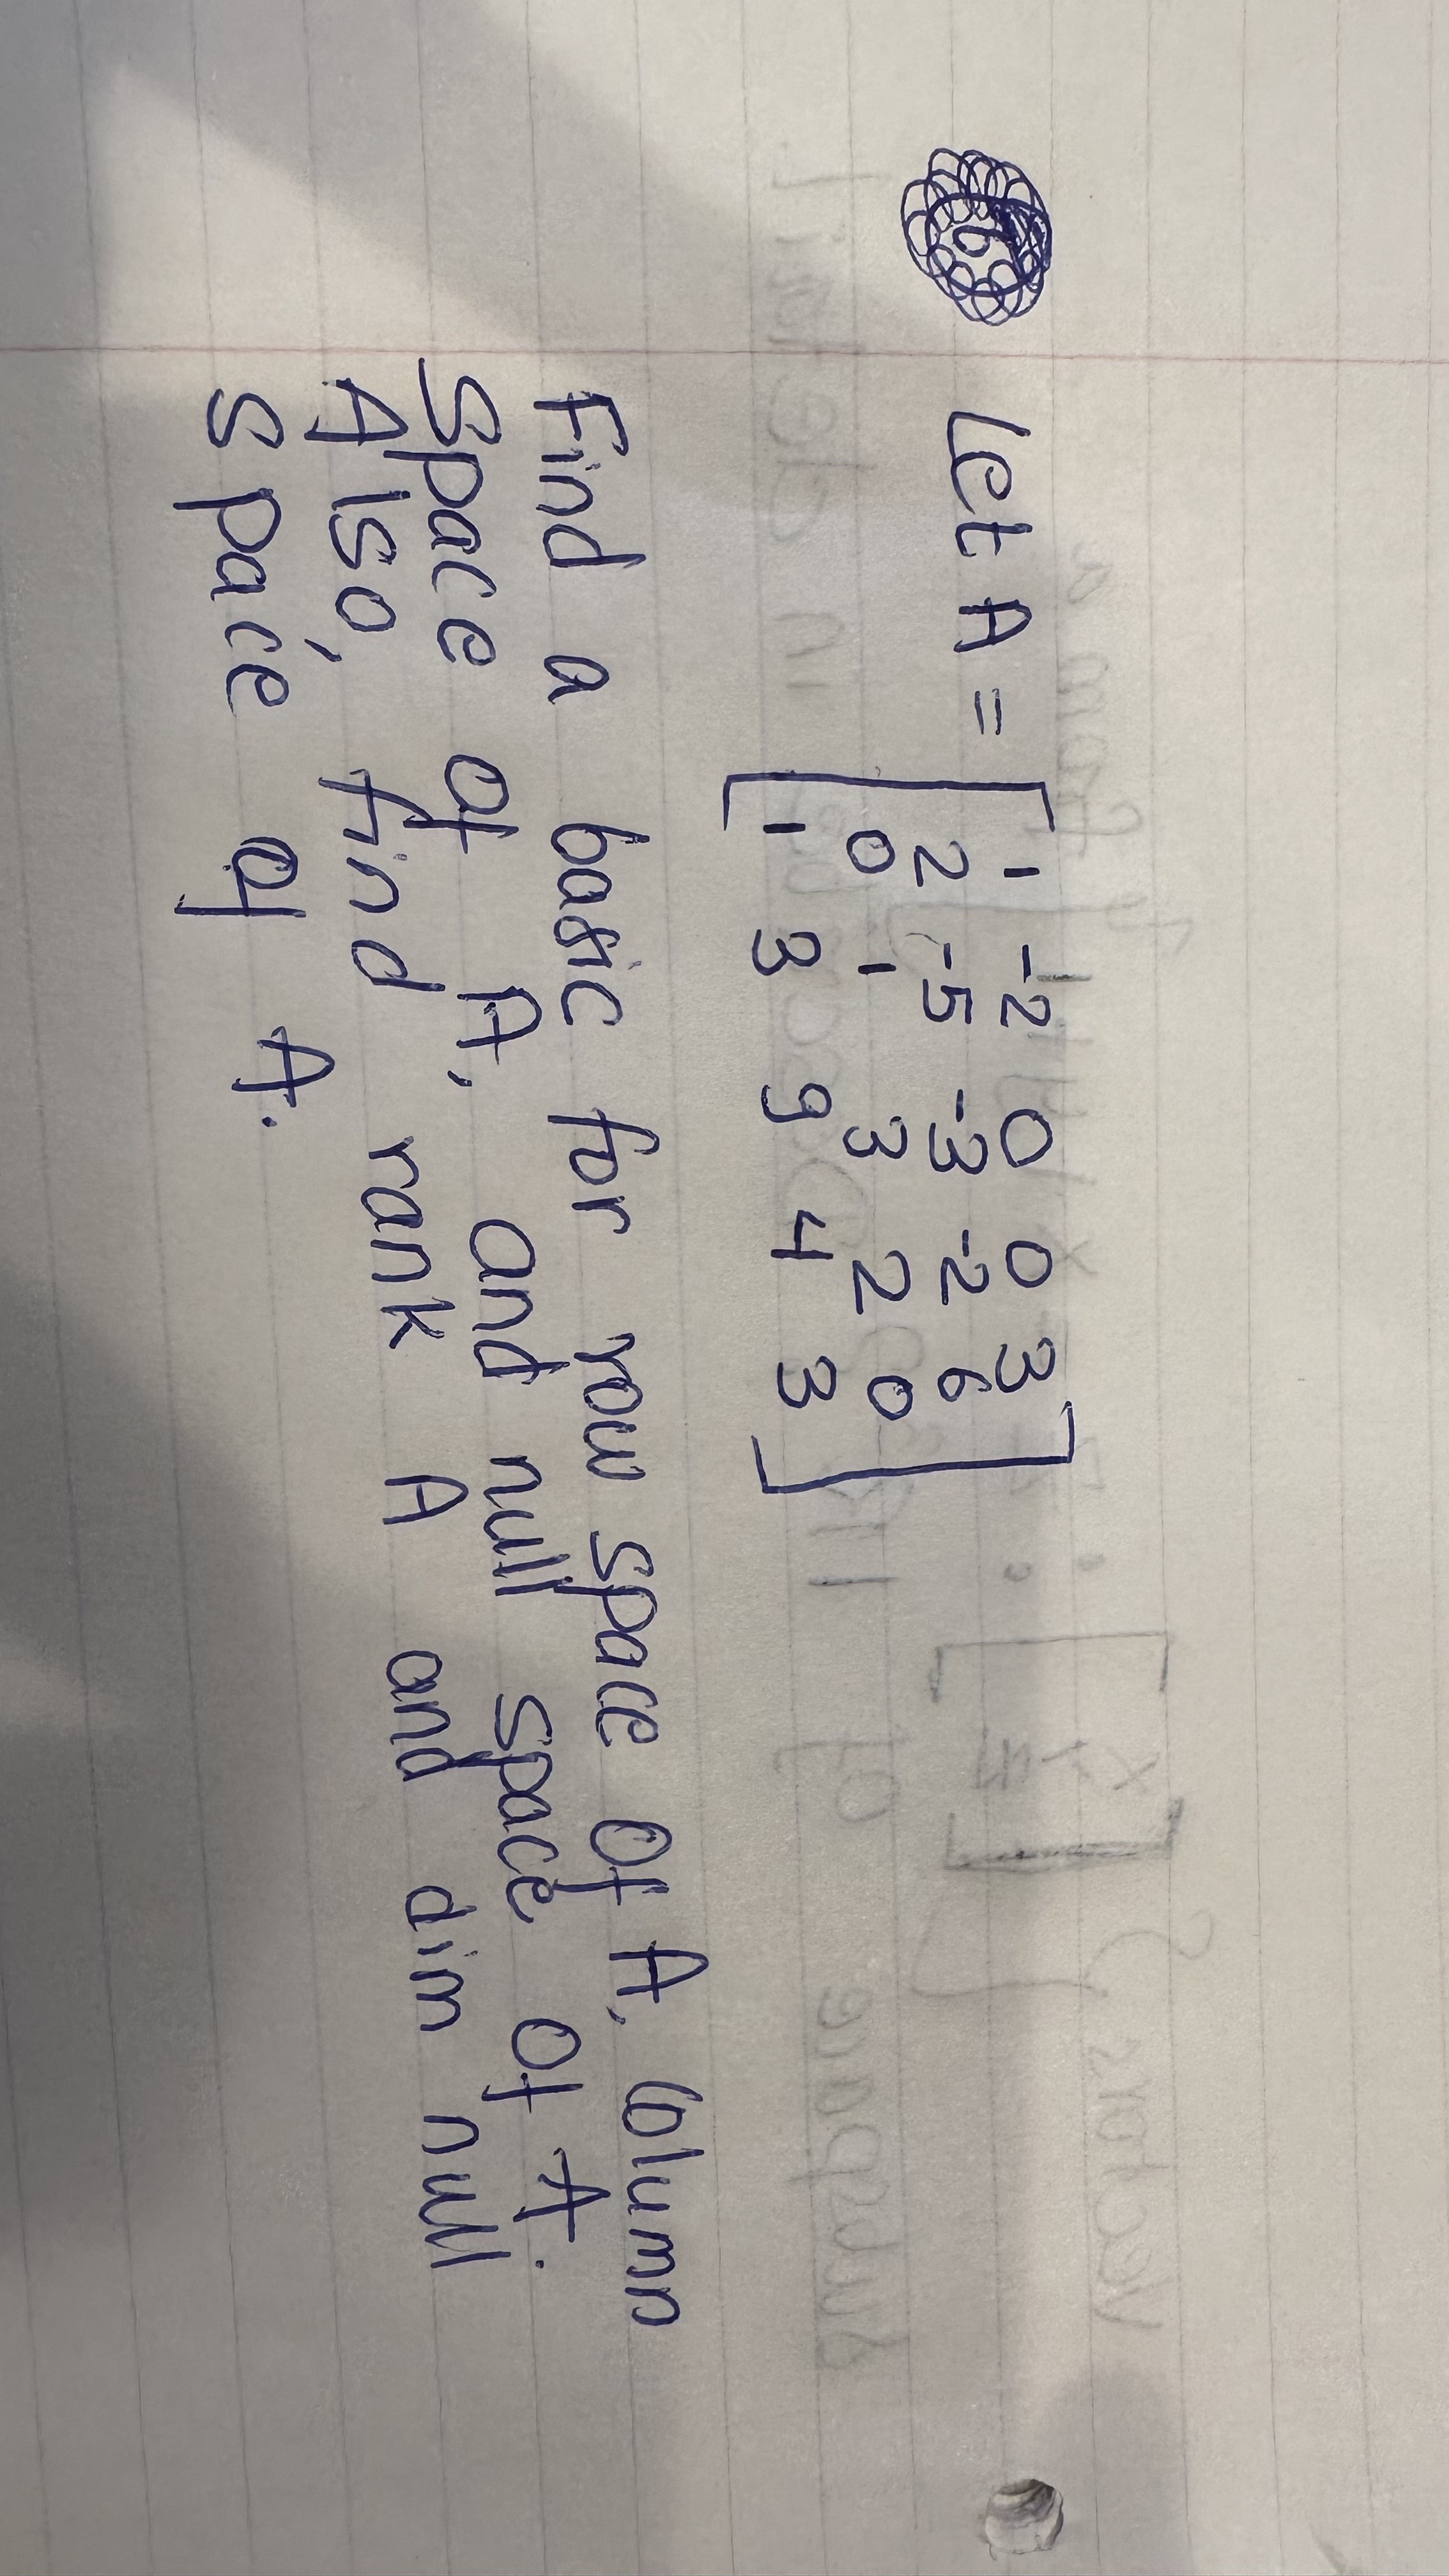 6
Let A = [ 1 -2 0 0 3
2 -5 -3 -2 6
0 1 3 2 0
1 3 9 4 3 ]
Find a basic for row space of A, Column
Space of A, and null space of A.
Also, find rank A and dim null
space of A.